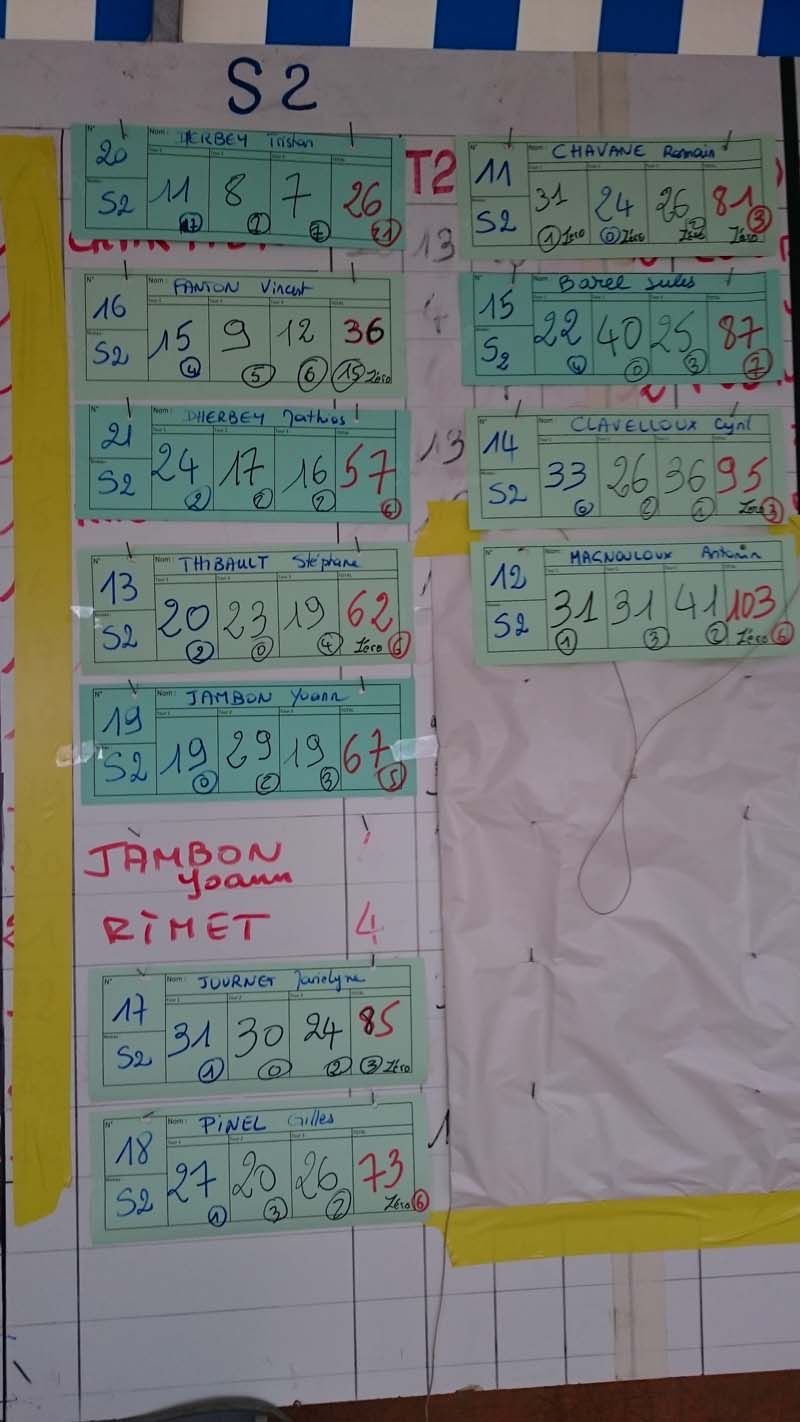 S2
N° 20 Nom : DHERBEY Tristan
S2 11 8 7 26
17 2 7 21
N° 16 Nom : FANTON Vincent
S2 15 9 12 36
4 5 6 15 Zéro
N° 21 Nom : DHERBEY Mathios
S2 24 17 16 57
2 2 2 6
N° 13 Nom : THIBAULT Stéphane
S2 20 23 19 62
2 0 4 Zéro 6
N° 19 Nom : JAMBON Yoann
S2 19 29 19 67
0 2 3 5
JAMBON
Yoann
RIMET 4
N° 17 Nom : JOURNET
S2 31 30 24 85
1 0 2 3 Zéro
N° 18 Nom : PINEL Gilles
S2 27 20 26 73
1 3 2 Zéro 6
T2
N° 11 Nom : CHAVANE Romain
S2 31 24 26 81
1 Zéro 0 Zéro 2 Zéro 3 Zéro
13
4
N° 15 Barel Jules
S2 22 40 25 87
4 0 3 7
13
N° 14 Nom : CLAVELLOUX Cyril
S2 33 26 36 95
0 2 1 Zéro 3
N° 12 Nom : MAGNOULOUX Antonin
S2 31 31 41 103
1 3 2 Zéro 6